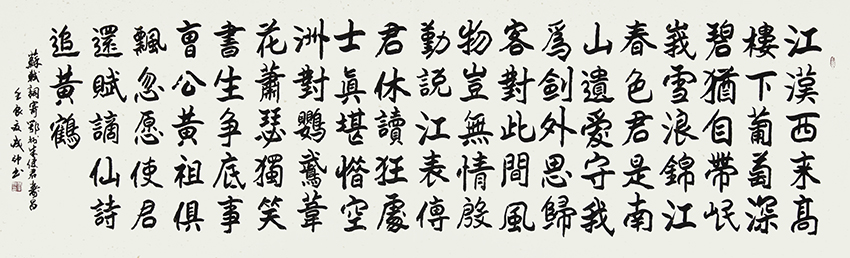 江漢西来高
樓下葡萄深
碧猶自帶岷
峩雪浪錦江
春色君是南
山遺愛守我
爲劍外思歸
客對此間風
物豈無情殷
勤説江表傳
君休讀狂處
士眞堪惜空
洲對鸚鵡葦
花蕭瑟獨笑
書生争底事
曺公黄祖俱
飄忽愿使君
還賦謫仙詩
追黄鶴
蘇軾詞寄鄂州朱使君壽昌